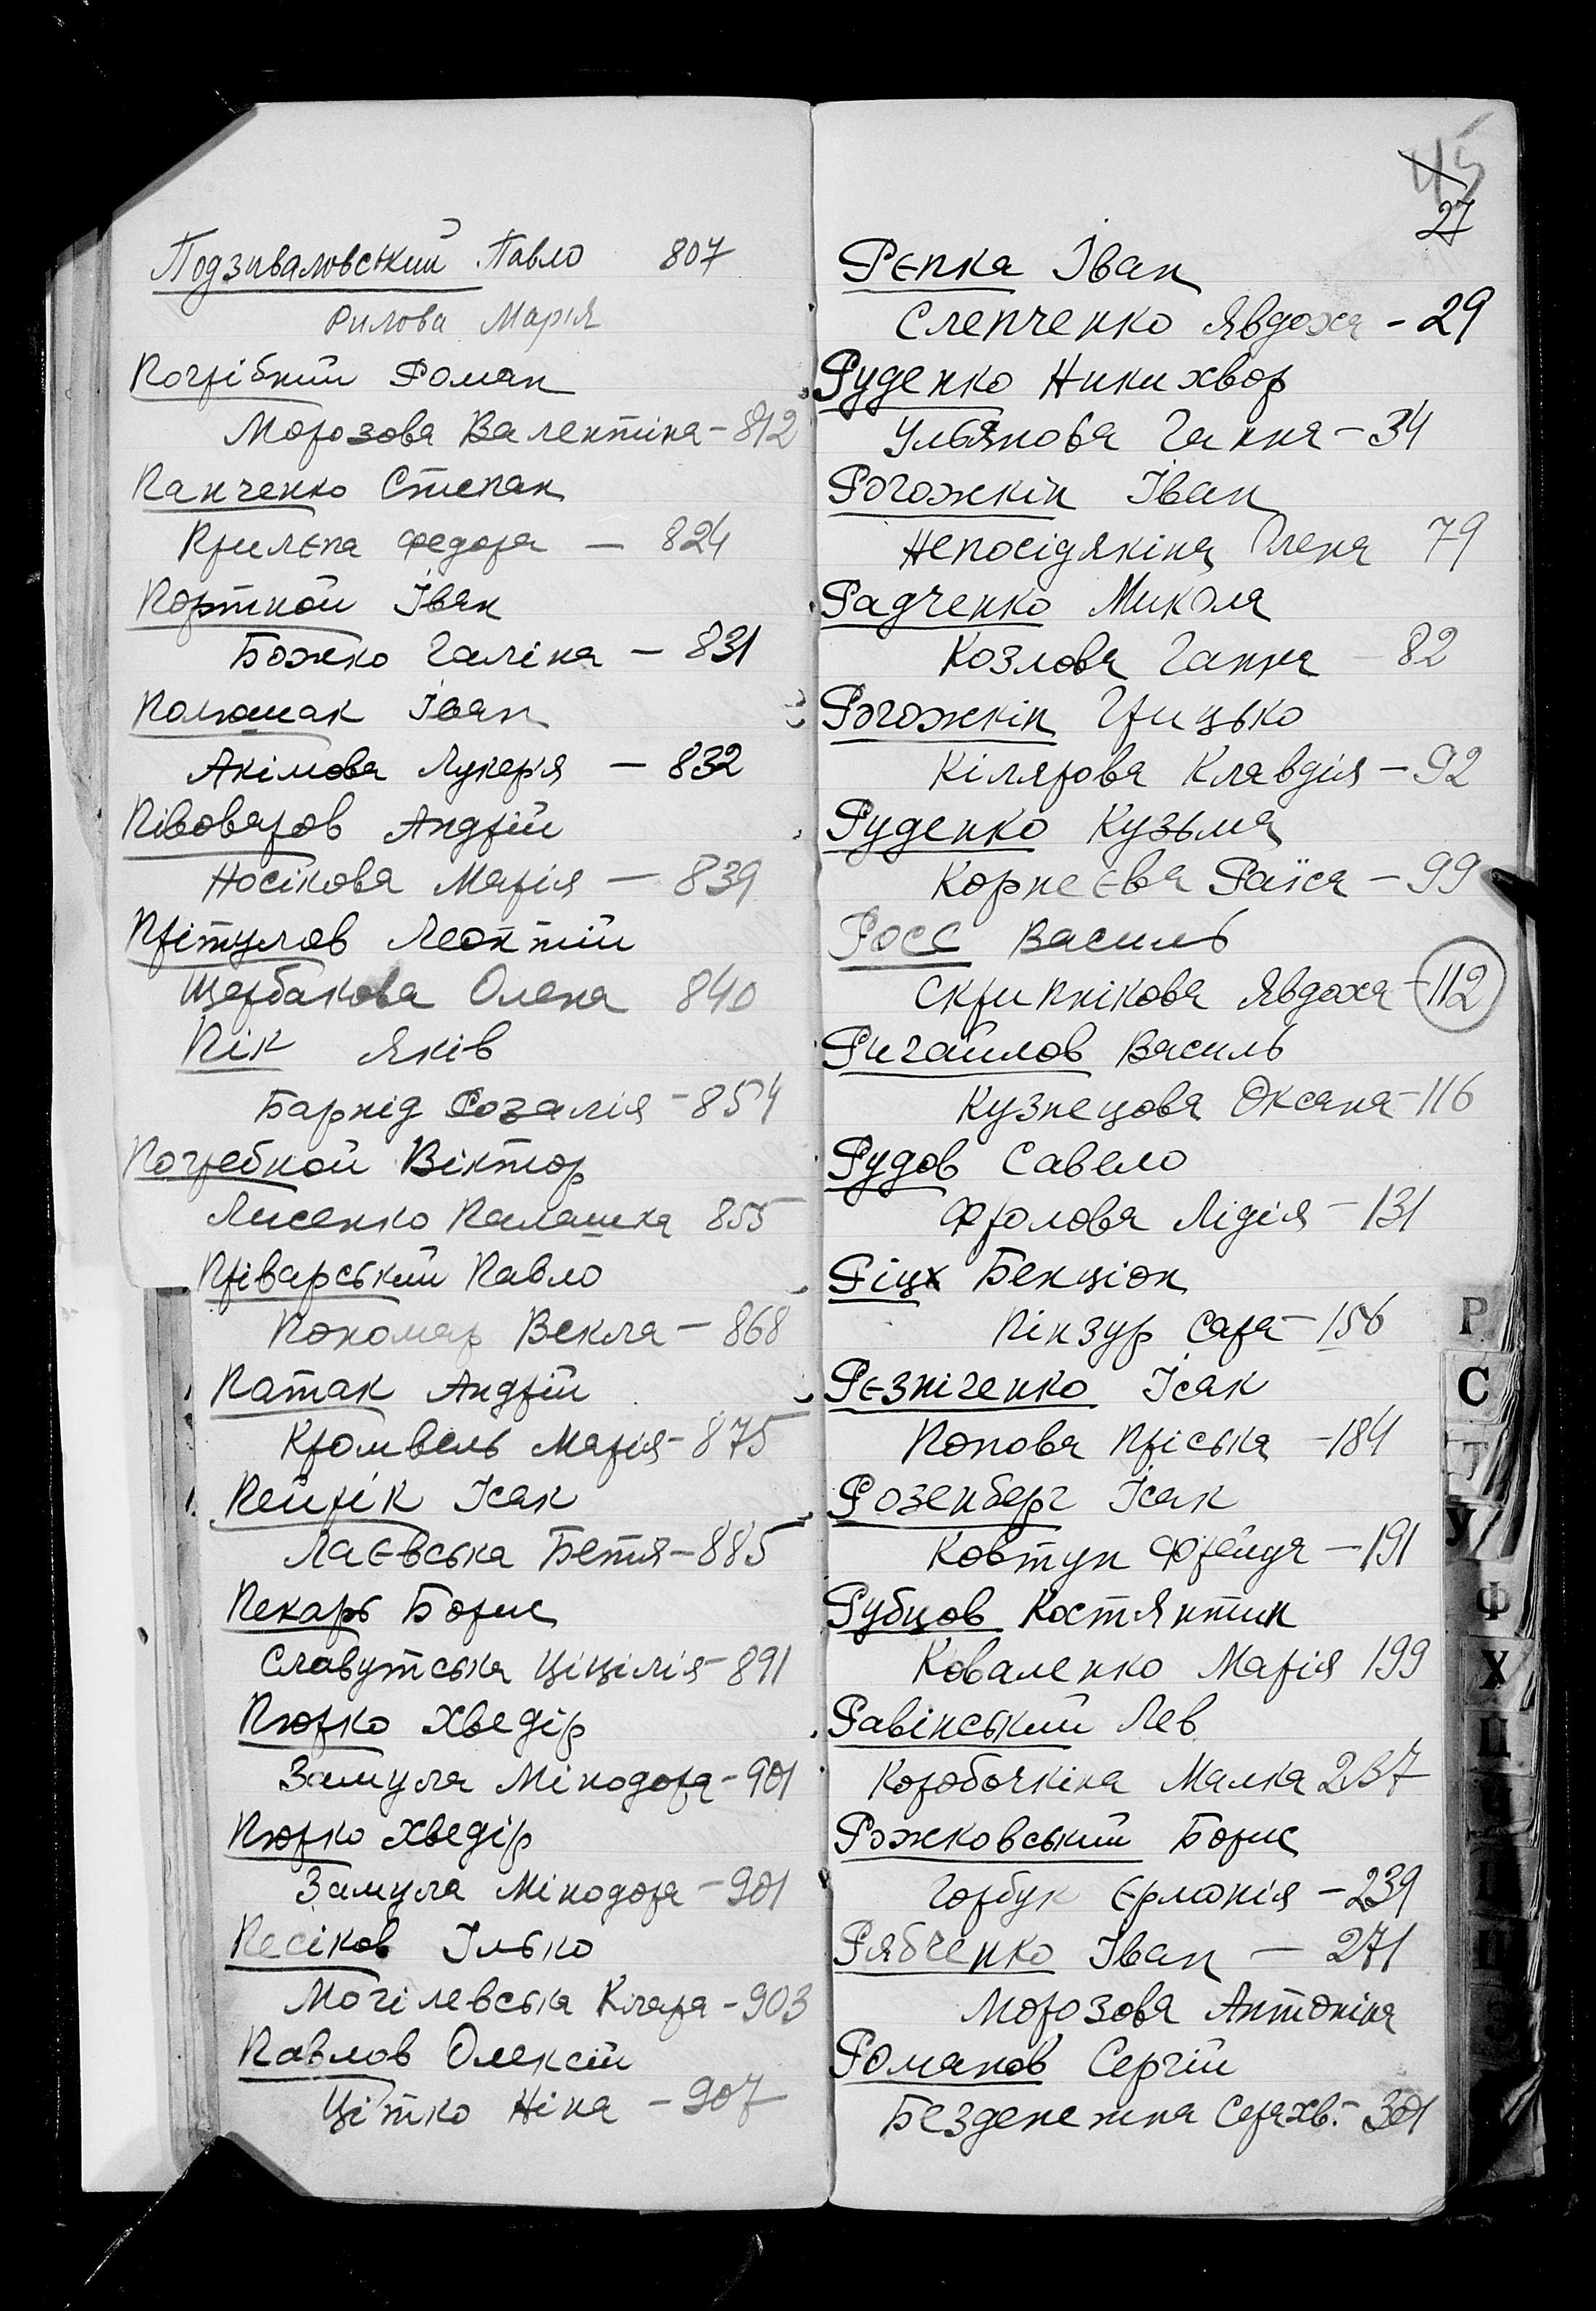 Подзиваловський Павло 807
Рилова Марія
Погрібний Роман
Морозова Валентіна - 812
Панченко Степан
Прилєпа Федора — 824
Портной Іван
Божко Галіна — 831
Полюшак Іван
Акімова Лукеря — 832
Півоваров Андрій
Носікова Марія — 839
Прітулов Леонтій
Щербакова Олена 840
Пік Яків
Барнід Розалія - 854
Погребной Віктор
Лисенко Палашка 855
Пріварський Павло
Пономар Векла — 868
Патак Андрій
Кромвель Марія - 875
Пейрік Ісак
Лаєвська Бетя - 885
Пекарь Борис
Славутська Ціцілія - 891
Пюрко Хведір
Замула Мінодора - 901
Пюрко Хведір
Замула Мінодора - 901
Песіков Ілько
Могілевська Клара - 903
Павлов Олексій
Цітко Ніна - 907
45
27
Рєпка Іван
Слепченко Явдоха - 29
Руденко Никихвор
Ульянова Ганна - 34
Рогожкін Іван
Непосідякіна Олена 79
Радченко Микола
Козлова Ганна - 82
Рогожкін Грицько
Кілярова Клавдія - 92
Руденко Кузьма
Корнеєва Раїса - 99
Росс Василь
Скрипнікова Явдоха - 112
Ригайлов Василь
Кузнецова Оксана - 116
Рудов Савело
Фролова Лідія - 131
Ріцх Бенціон
Пінзур Сара - 156
Рєзніченко Ісак
Попова Пріська - 184
Розенберг Ісак
Ковтун Фрейда - 191
Рубцов Костянтин
Коваленко Марія 199
Равінський Лев
Коробочкіна Малка 237
Рожковський Борис
Горбук Єрмонія - 239
Рябченко Іван — 271
Морозова Антоніна
Романов Сергій
Безденежна Серахв. - 301
Р
С
Т
У
Ф
Х
Ц